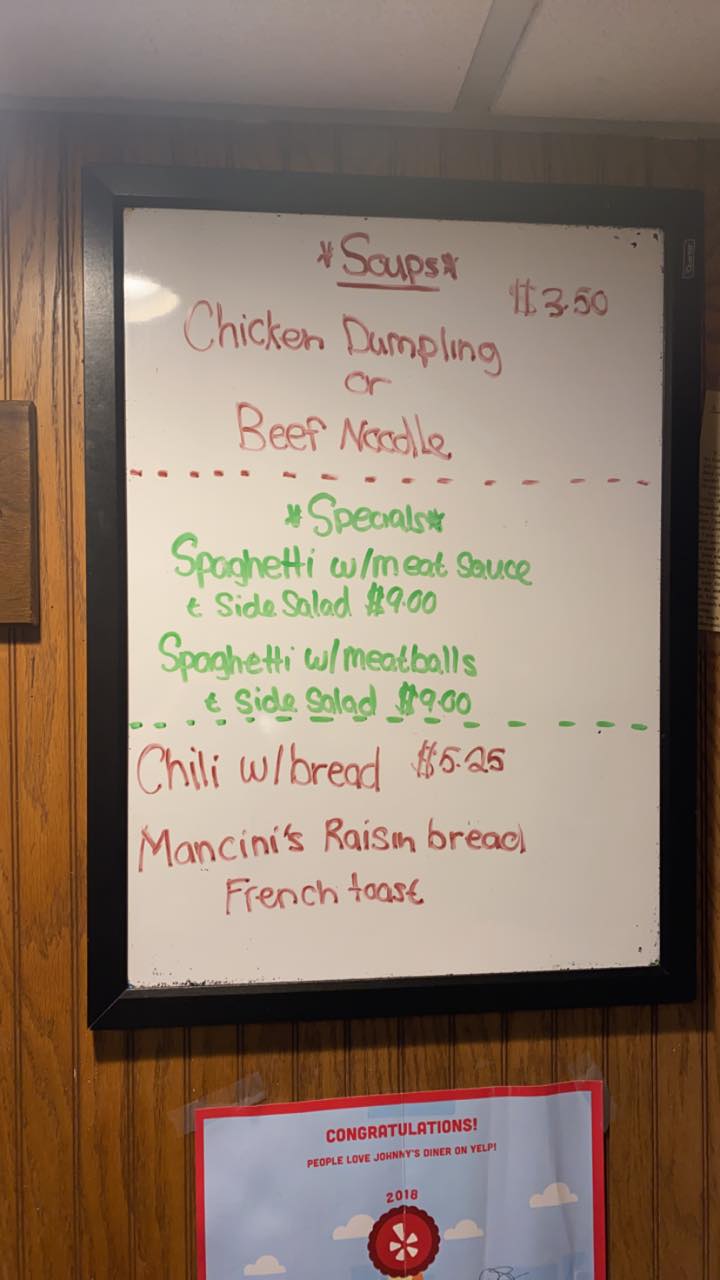 *Soups*
$3.50
Chicken Dumpling
or
Beef Noodle
*Specials*
Spaghetti w/meat sauce
& Side Salad $9.00
Spaghetti w/meatballs
& Side Salad $9.00
Chili w/bread $5.25
Mancini's Raisin bread
French toast
CONGRATULATIONS!
PEOPLE LOVE JOHNNY'S DINER ON YELP!
2018